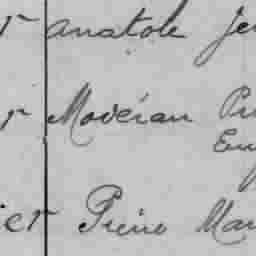 r Anatole Je
r Moderan Pr
Eu
ier Pierre Mar